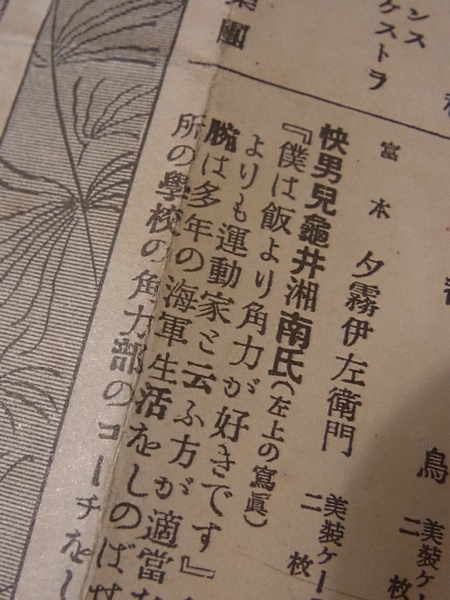 ンス
ケストラ
團
鳥
美装ケ
二枚
富本 夕霧伊左衛門 美装ケー
二枚
快男兒龜井湘南氏(左上の寫眞)
『僕は飯より角力が好きです』
よりも運動家と云ふ方が適當な
腕は多年の海軍生活をしのばせ
所の學校の角力部のコーチをし